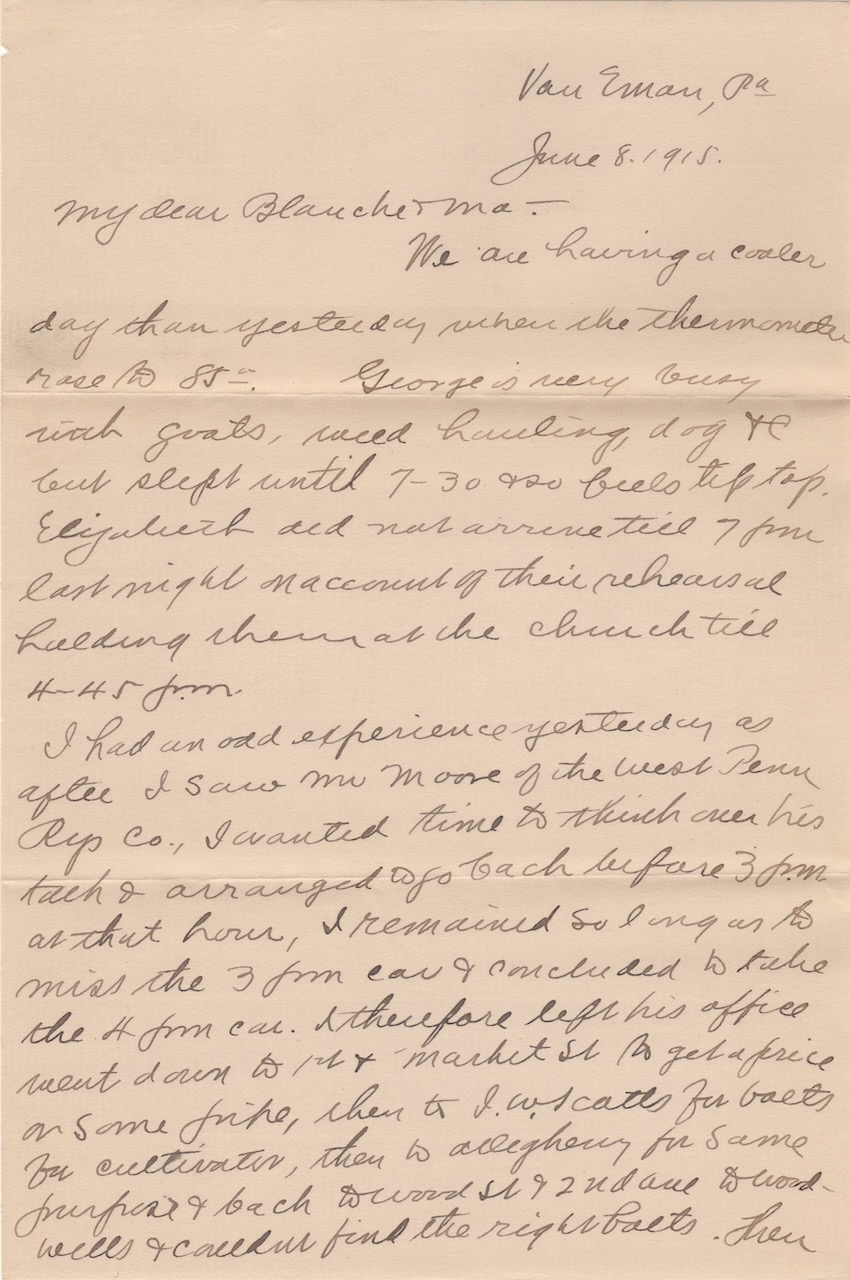 Van Eman, Pa
June 8. 1915.
My dear Blanche & Ma -
We are having a cooler
day than yesterday when the thermometer
rose to 85°. George is very busy
with goats, weed hauling, dog &c
but slept until 7-30 & so feels tip top.
Elizabeth did not arrive till 7 pm
last night on account of their rehearsal
holding them at the church till
4-45 p.m.
I had an odd experience yesterday as
after I saw Mr Moore of the West Penn
Rys Co., I wanted time to think over his
talk & arranged to go back before 3 p.m
at that hour, I remained so long as to
miss the 3 pm car & concluded to take
the 4 pm car. I therefore left his office
went down to 1st & Market St to get a price
on some pipe, then to J. W. Scotts for bolts
for cultivator, then to Allegheny for same
purpose & back to Wood St & 2nd ave to Wood-
wells & couldnt find the right bolts. Then